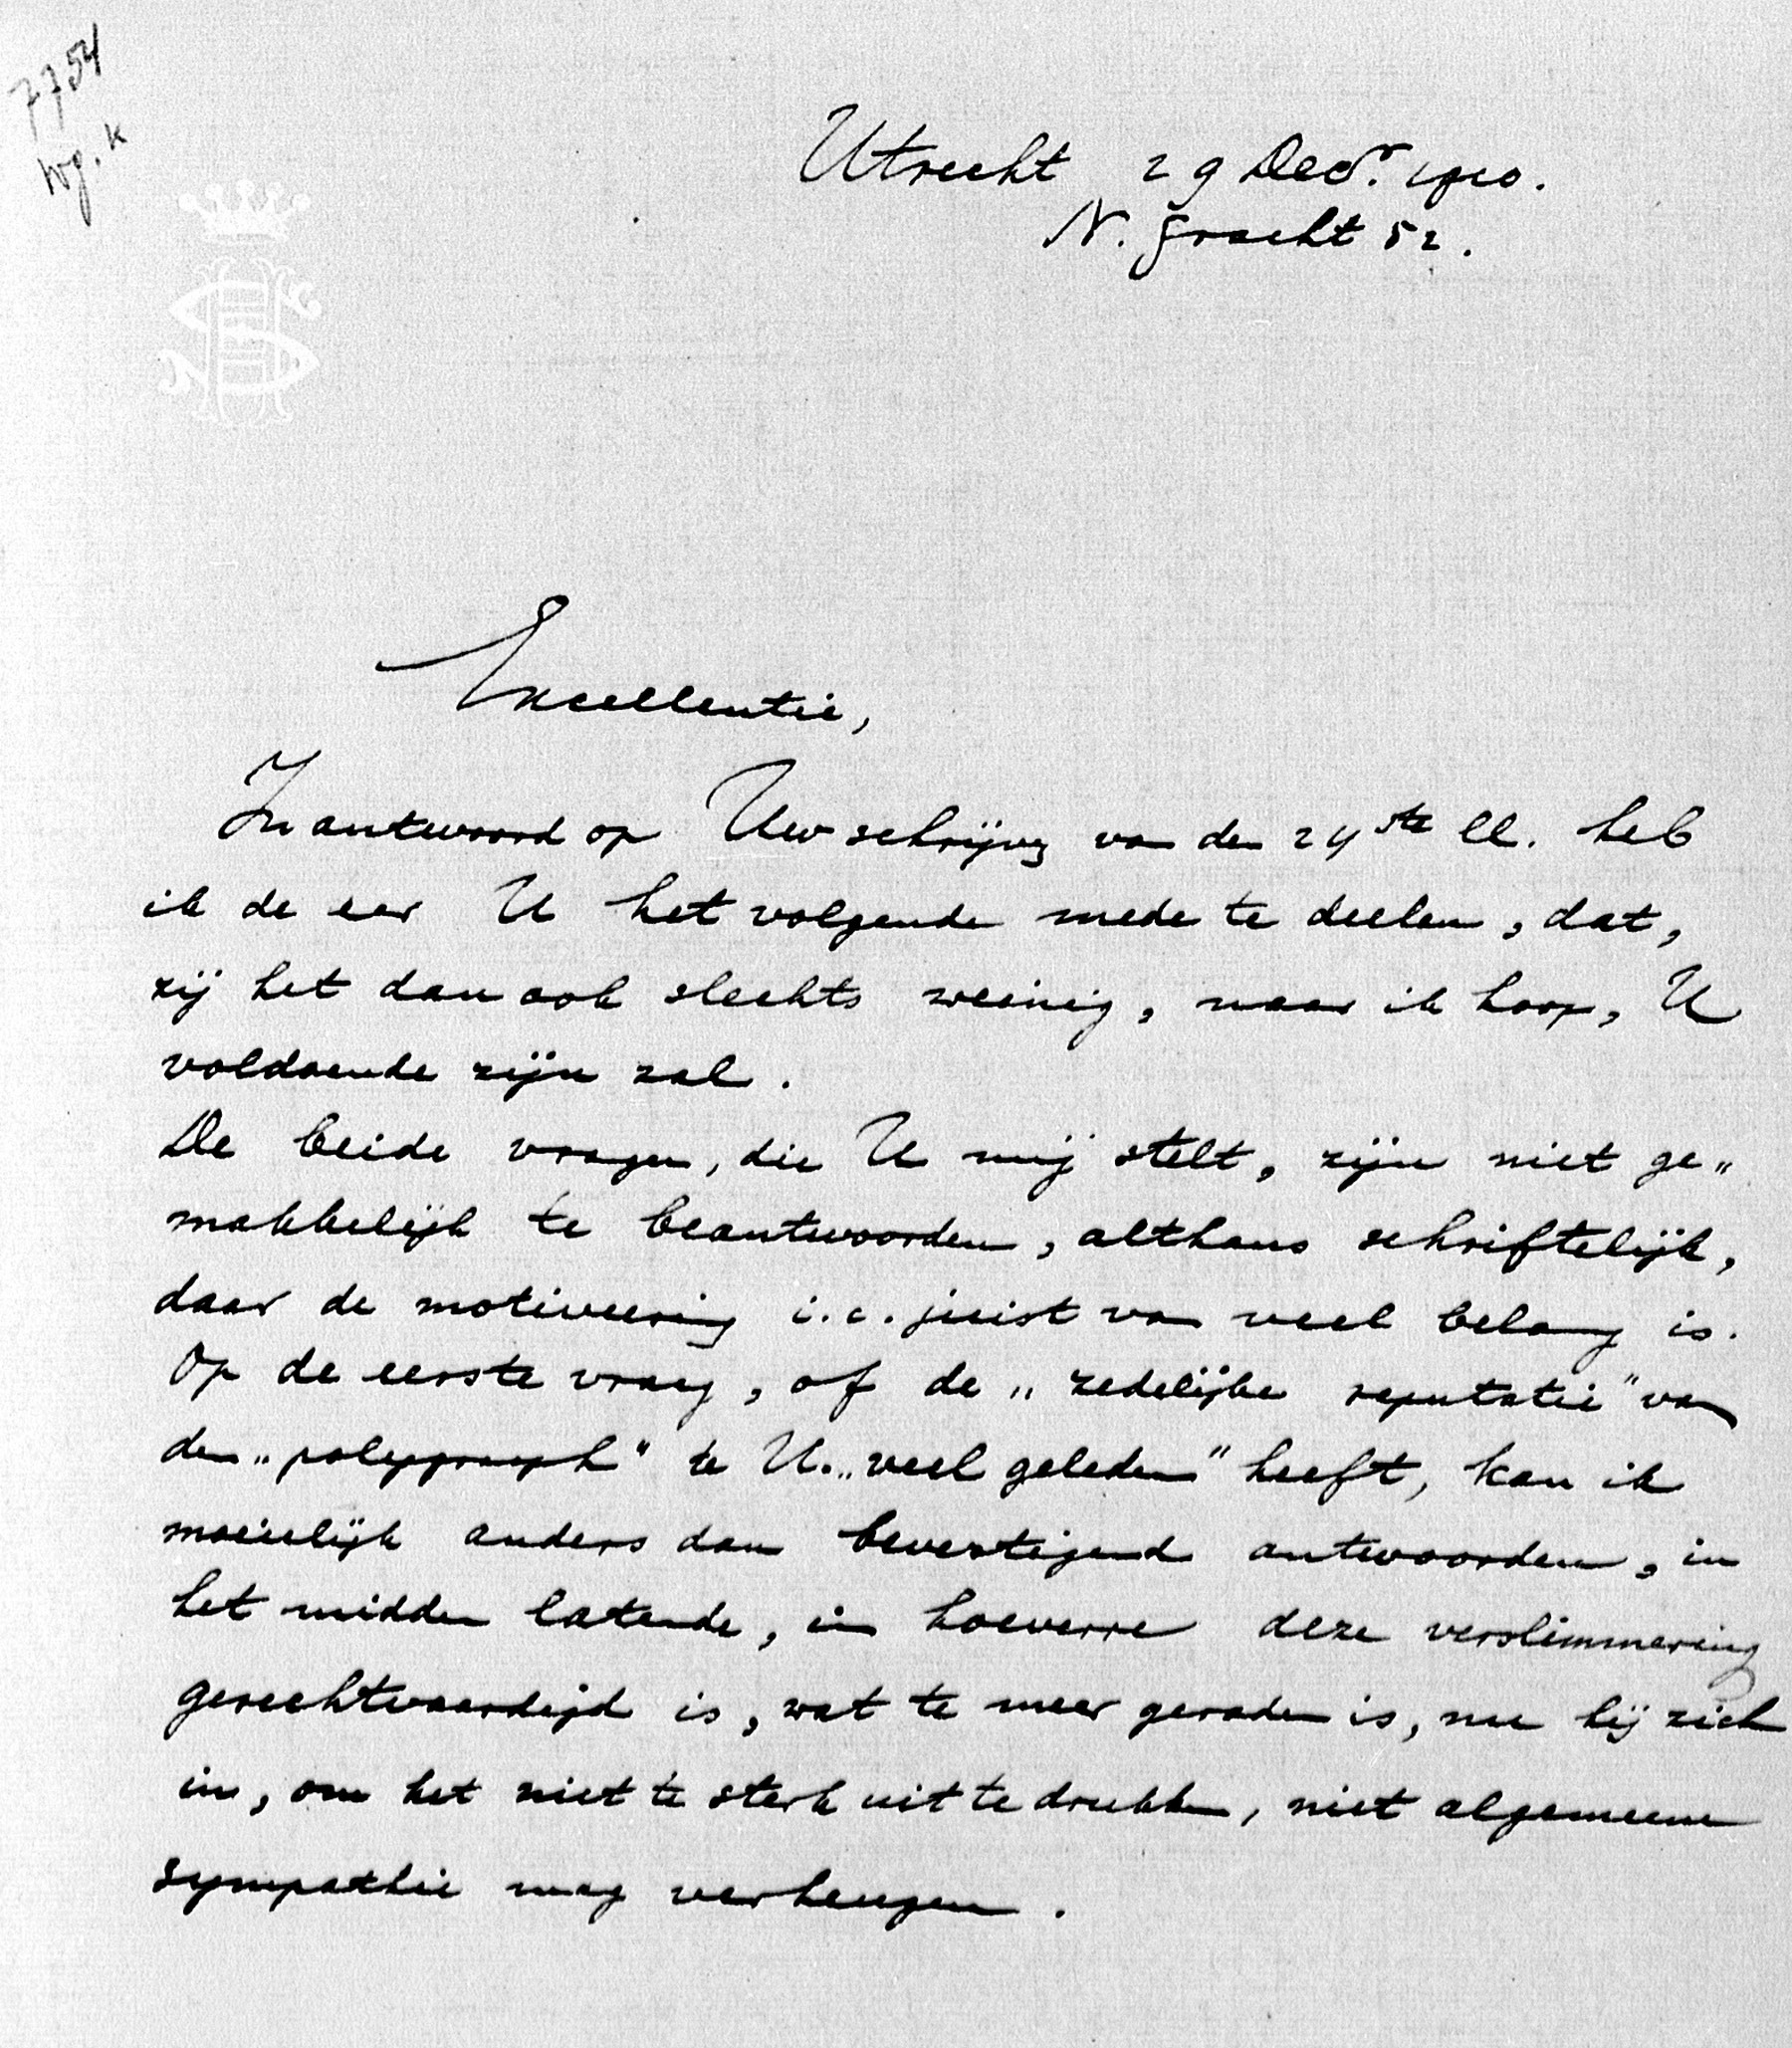 7754
Utrecht 29 Decr. 1910.
N. gracht 52.
Excellentie,
In antwoord op Uw schrijvg van den 24ste ll. heb
ik de eer U het volgende mede te deelen, dat,
zij het dan ook slechts weinig, naar ik hoop, U
voldoende zijn zal.
De beide vragen, die U mij stelt, zijn niet ge„
makkelijk te beantwoorden, althans schriftelijk,
daar de motiveering i.c. juist van veel belang is.
Op de eerste vraag, of de „zedelijke reputatie" van
den „polygraaph" te U. „veel geleden" heeft, kan ik
moeielijk anders dan bevestigend antwoorden, in
het midden latende, in hoeverre deze verslimmering
gerechtvaardigd is, wat te meer geraden is, nu hij zich
in, om het niet te sterk uit te drukken, niet algemeene
sympathie mag verheugen.